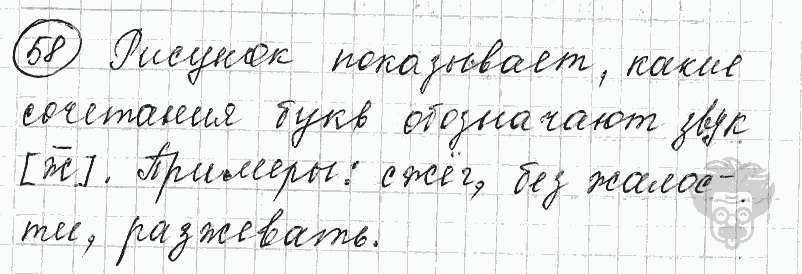 58 Рисунок показывает, какие
сочетания букв обозначают звук
[ж̄]. Примеры: сжёг, без жалос-
ти, разжевать.